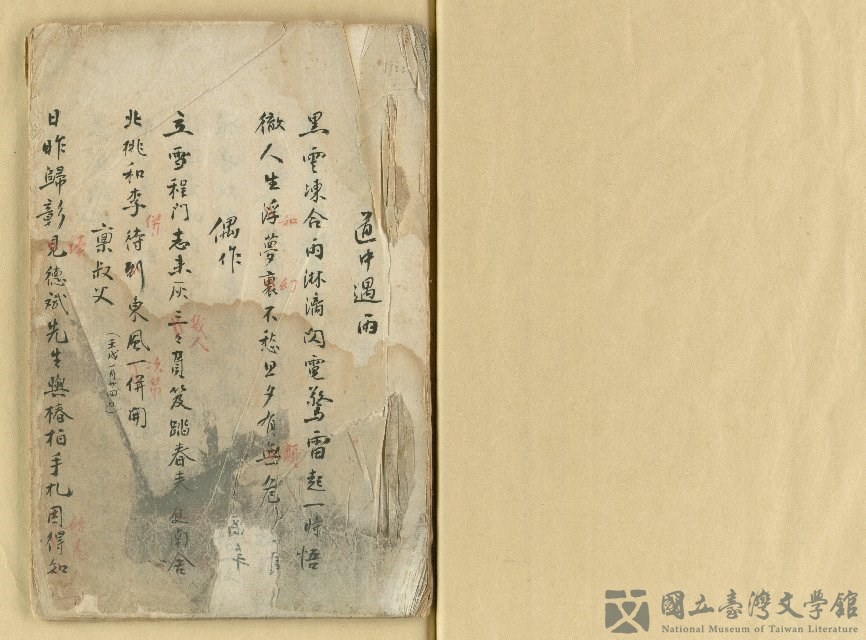 道中遇雨
黑雲凍合雨淋漓閃電驚雷起一時悟
徹人生浮夢裏不愁旦夕有無危
偶作
立雪程門志未灰三々負笈踏春來 南舍
北桃和李待到東風一併開
稟叔父
(壬戌一月廿四日)
日昨歸彰見德斌先生與椿柏手札因得知
國立臺灣文學館
National Museum of Taiwan Literature